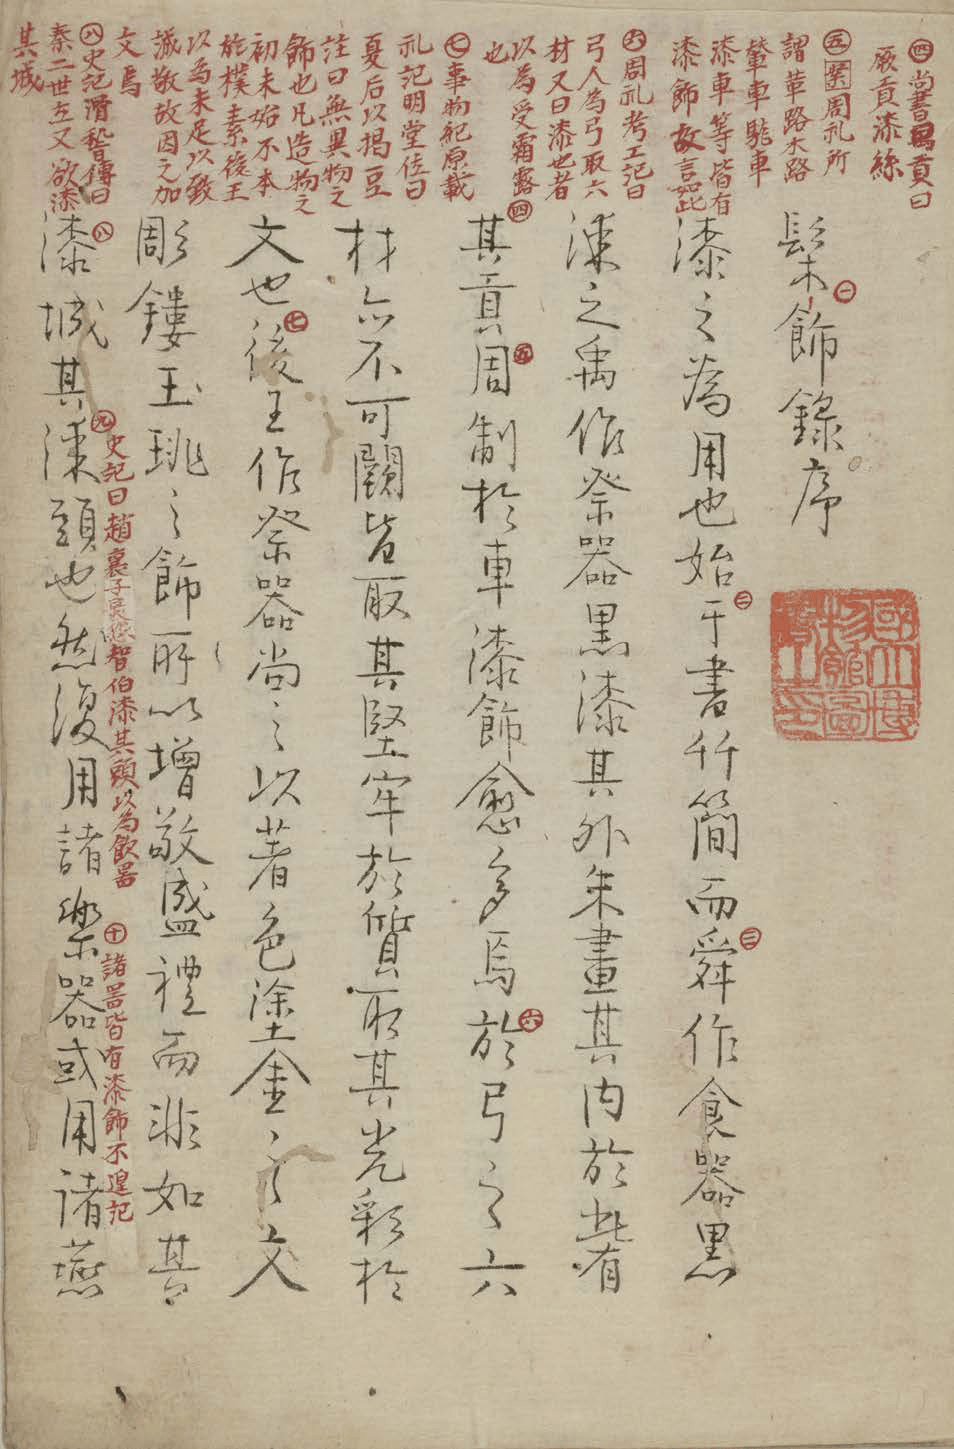 ㊃尚書禹貢曰
厥貢漆絲
㊄案周礼所
謂革路木路
輦車駹車
漆車等皆有
漆飾故言如此
㊅周礼考工記曰
弓人為弓取六
材又曰漆也者
以為受霜露
也
㊆事物紀原載
礼記明堂位曰
夏后以揭豆
註曰無異物之
飾也凡造物之
初未始不本
於樸素後王
以為未足以致
誠敬故因之加
文焉
㊇史記滑稽傳曰
秦二世立又欲漆
其城
髹㊀飾錄序
國立博
物館圖
書之印
漆之為用也始㊁于書竹簡而㊂舜作食器黑
漆之禹作祭器黑漆其外朱畫其内於此有
㊃其貢㊄周制於車漆飾愈多焉㊅於弓之六
材亦不可闕皆取其堅牢於質取其光彩於
文也㊆後王作祭器尚之以著色塗金之文
彫鏤玉珧之飾所以增敬盛禮而非如其
㊇漆城其㊈漆頭也然復用諸樂器或用諸燕
史記曰趙襄子怨智伯漆其頭以為飲器
㊉諸器皆有漆飾不遑記